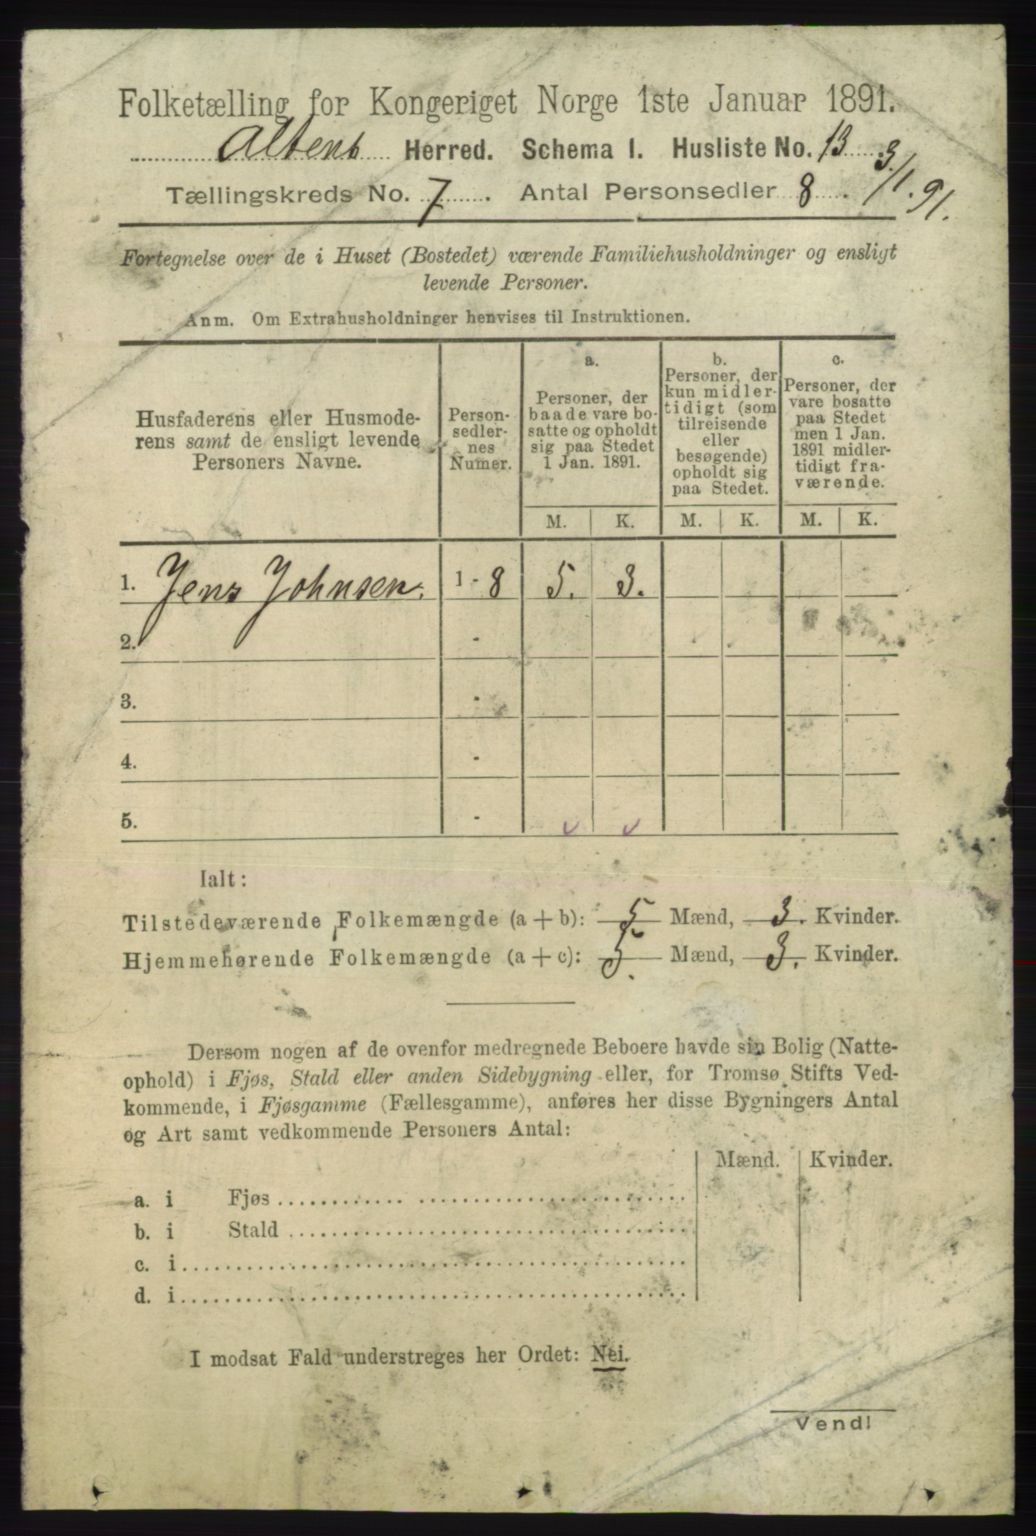 Folketælling for Kongeriget Norge 1ste Januar 1891.
Altens Herred. Schema I. Husliste No. 13
Tællingskreds No. 7. Antal Personsedler 8. 3/1. 91.
Fortegnelse over de i Huset (Bostedet) værende Familiehusholdninger og ensligt
levende Personer.
Anm. Om Extrahusholdninger henvises til Instruktionen.
Husfaderens eller Husmode-
rens samt de ensligt levende
Personers Navne.
Person-
sedler-
nes
Numer.
a.
Personer, der
baade vare bo-
satte og opholdt
sig paa Stedet
1 Jan. 1891.
b.
Personer, der
kun midler-
tidigt (som
tilreisende
eller
besøgende)
opholdt sig
paa Stedet.
c.
Personer, der
vare bosatte
paa Stedet
men 1 Jan.
1891 midler-
tidigt fra-
værende.
M. K. M. K. M. K.
1. Jens Johnsen. 1 - 8 5. 3.
2. -
3. -
4. -
5. -
Ialt:
Tilstedeværende Folkemængde (a + b): 5 Mænd, 3. Kvinder.
Hjemmehørende Folkemængde (a + c): 5. Mænd, 3. Kvinder.
Dersom nogen af de ovenfor medregnede Beboere havde sin Bolig (Natte-
ophold) i Fjøs, Stald eller anden Sidebygning eller, for Tromsø Stifts Ved-
kommende, i Fjøsgamme (Fællesgamme), anføres her disse Bygningers Antal
og Art samt vedkommende Personers Antal:
Mænd. Kvinder.
a. i Fjøs
b. i Stald
c. i
d. i
I modsat Fald understreges her Ordet: Nei.
Vend!